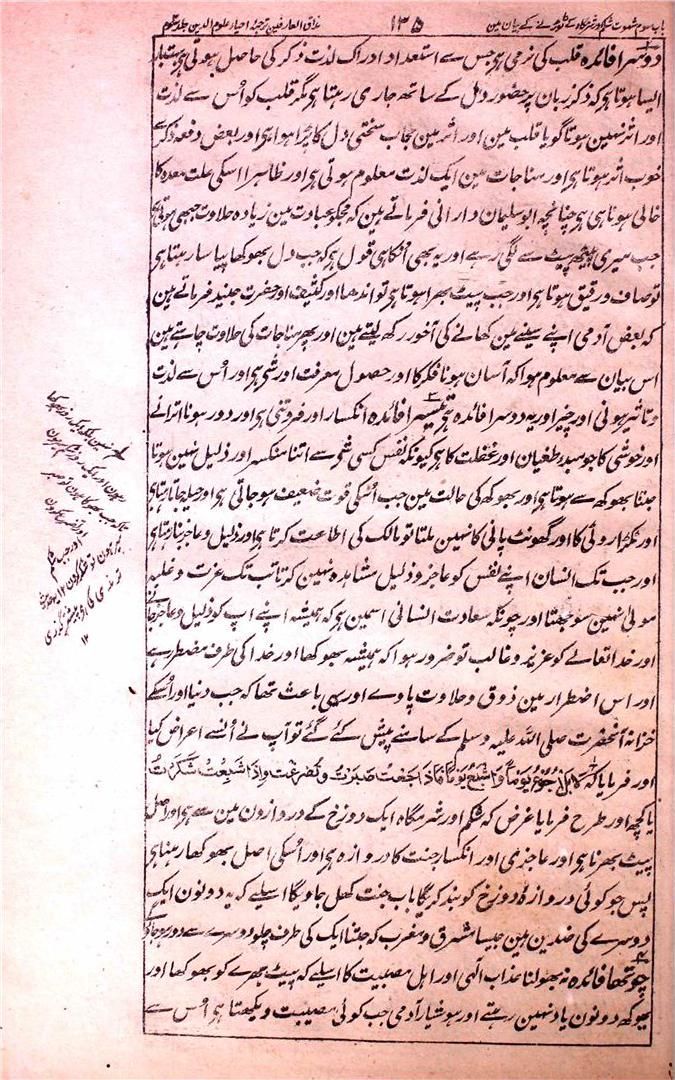 باب سوم شہوت شکم اور شرمگاہ کے توڑنے کے بیان مین
۱۳۵
مذاق العارفین ترجمۂ احیاء علوم الدین جلد سوم
دوسرا فائدہ قلب کی نرمی ہی جس سے استعداد ادراک لذت ذکر کی حاصل ہوتی ہی بہتبار
ایسا ہوتا ہی کہ ذکر زبان پر حضور دل کے ساتھ جاری رہتا ہی مگر قلب کو اُس سے لذت
اور اثر نہین ہوتا گویا قلب مین اور اثر مین حجاب سختی دل کا پڑا ہوا ہی اور بعض دفعہ ذکر سے
خوب اثر ہوتا ہی اور مناجات مین ایک لذت معلوم ہوتی ہی اور ظاہرا اسکی علت معدہ کا
خالی ہونا ہی ہی چنانچہ ابو سلیمان دارانی فرماتے ہین کہ مجکو عبادت مین زیادہ حلاوت جبھی ہوتی ہی
جب میری پیٹھ پیٹ سے لگی رہے اور یہ بھی اُنکا ہی قول ہی کہ جب دل بھوکھا پیاسا رہتا ہی
تو صاف و رقیق ہوتا ہی اور جب پیٹ بھرا ہوتا ہی تو اندھا اور کثیف اور حضرت جنید فرماتے ہین
کہ بعض آدمی اپنے سینے مین کھانے کی آخور رکھ لیتے ہین اور پھر مناجات کی حلاوت چاہتے ہین
اس بیان سے معلوم ہوا کہ آسان ہونا فکر کا اور حصول معرفت اور شی ہی اور اُس سے لذت
و تاثیر ہونی اور چیز اور یہ دوسرا فائدہ ہی تیسرا فائدہ انکسار اور فروتنی ہی اور دور ہونا اترانے
اور خوشی کا جو مبدء طغیان اور غفلت کا ہی کیونکہ نفس کسی شی سے اتنا منکسر اور ذلیل نہین ہوتا
جتنا بھوکھ سے ہوتا ہی اور بھوکھ کی حالت مین جب اُسکی قوت ضعیف ہو جاتی ہی اور حیلہ جاتا رہتا ہی
اور ٹکڑا روٹی کا اور گھونٹ پانی کا نہین ملتا تو مالک کی اطاعت کرتا ہی اور ذلیل و عاجز بنا رہتا ہی
اور جب تک انسان اپنے نفس کو عاجز و ذلیل مشاہدہ نہین کرتا تب تک عزت و غلبہ
مولی نہین سوجھتا اور چونکہ سعادت انسانی اسمین ہی کہ ہمیشہ اپنے آپ کو ذلیل و عاجز جانے
اور خدا تعالے کو عزیز و غالب تو ضرور ہوا کہ ہمیشہ بھوکھا اور خدا کی طرف مضطر رہے
اور اس اضطرار مین ذوق و حلاوت پاوے اور یہی باعث تھا کہ جب دنیا اور اُسکے
خزانہ آنحضرت صلی اللہ علیہ وسلم کے سامنے پیش کئے گئے تو آپ نے اُنسے اعراض کیا
اور فرمایا کہ لا بل اجوع یوما و اشبع یوما فاذا جعت صبرت و تضرعت و اذا شبعت شکرت
یا کچھ اور طرح فرمایا غرض کہ شکم اور شرمگاہ ایک دوزخ کے دروازون مین سے ہی اور اصل
پیٹ بھرنا ہی اور عاجزی اور انکسار جنت کا دروازہ ہی اور اُسکی اصل بھوکھا رہنا ہی
پس جو کوئی دروازۂ دوزخ کو بند کریگا باب جنت کھل جاویگا اسلیے کہ یہ دونون ایک
دوسرے کی ضدین ہین جیسا مشرق و مغرب کہ جتنا ایک کی طرف چلو دوسرے سے دور ہو جاؤگے
چوتھا فائدہ نہ بھولنا عذاب الٰہی اور اہل مصیبت کا اسلیے کہ پیٹ بھرے کو بھوکھا اور
بھوکھ دونون یاد نہین رہتے اور ہوشیار آدمی جب کوئی مصیبت دیکھتا ہی اُس سے